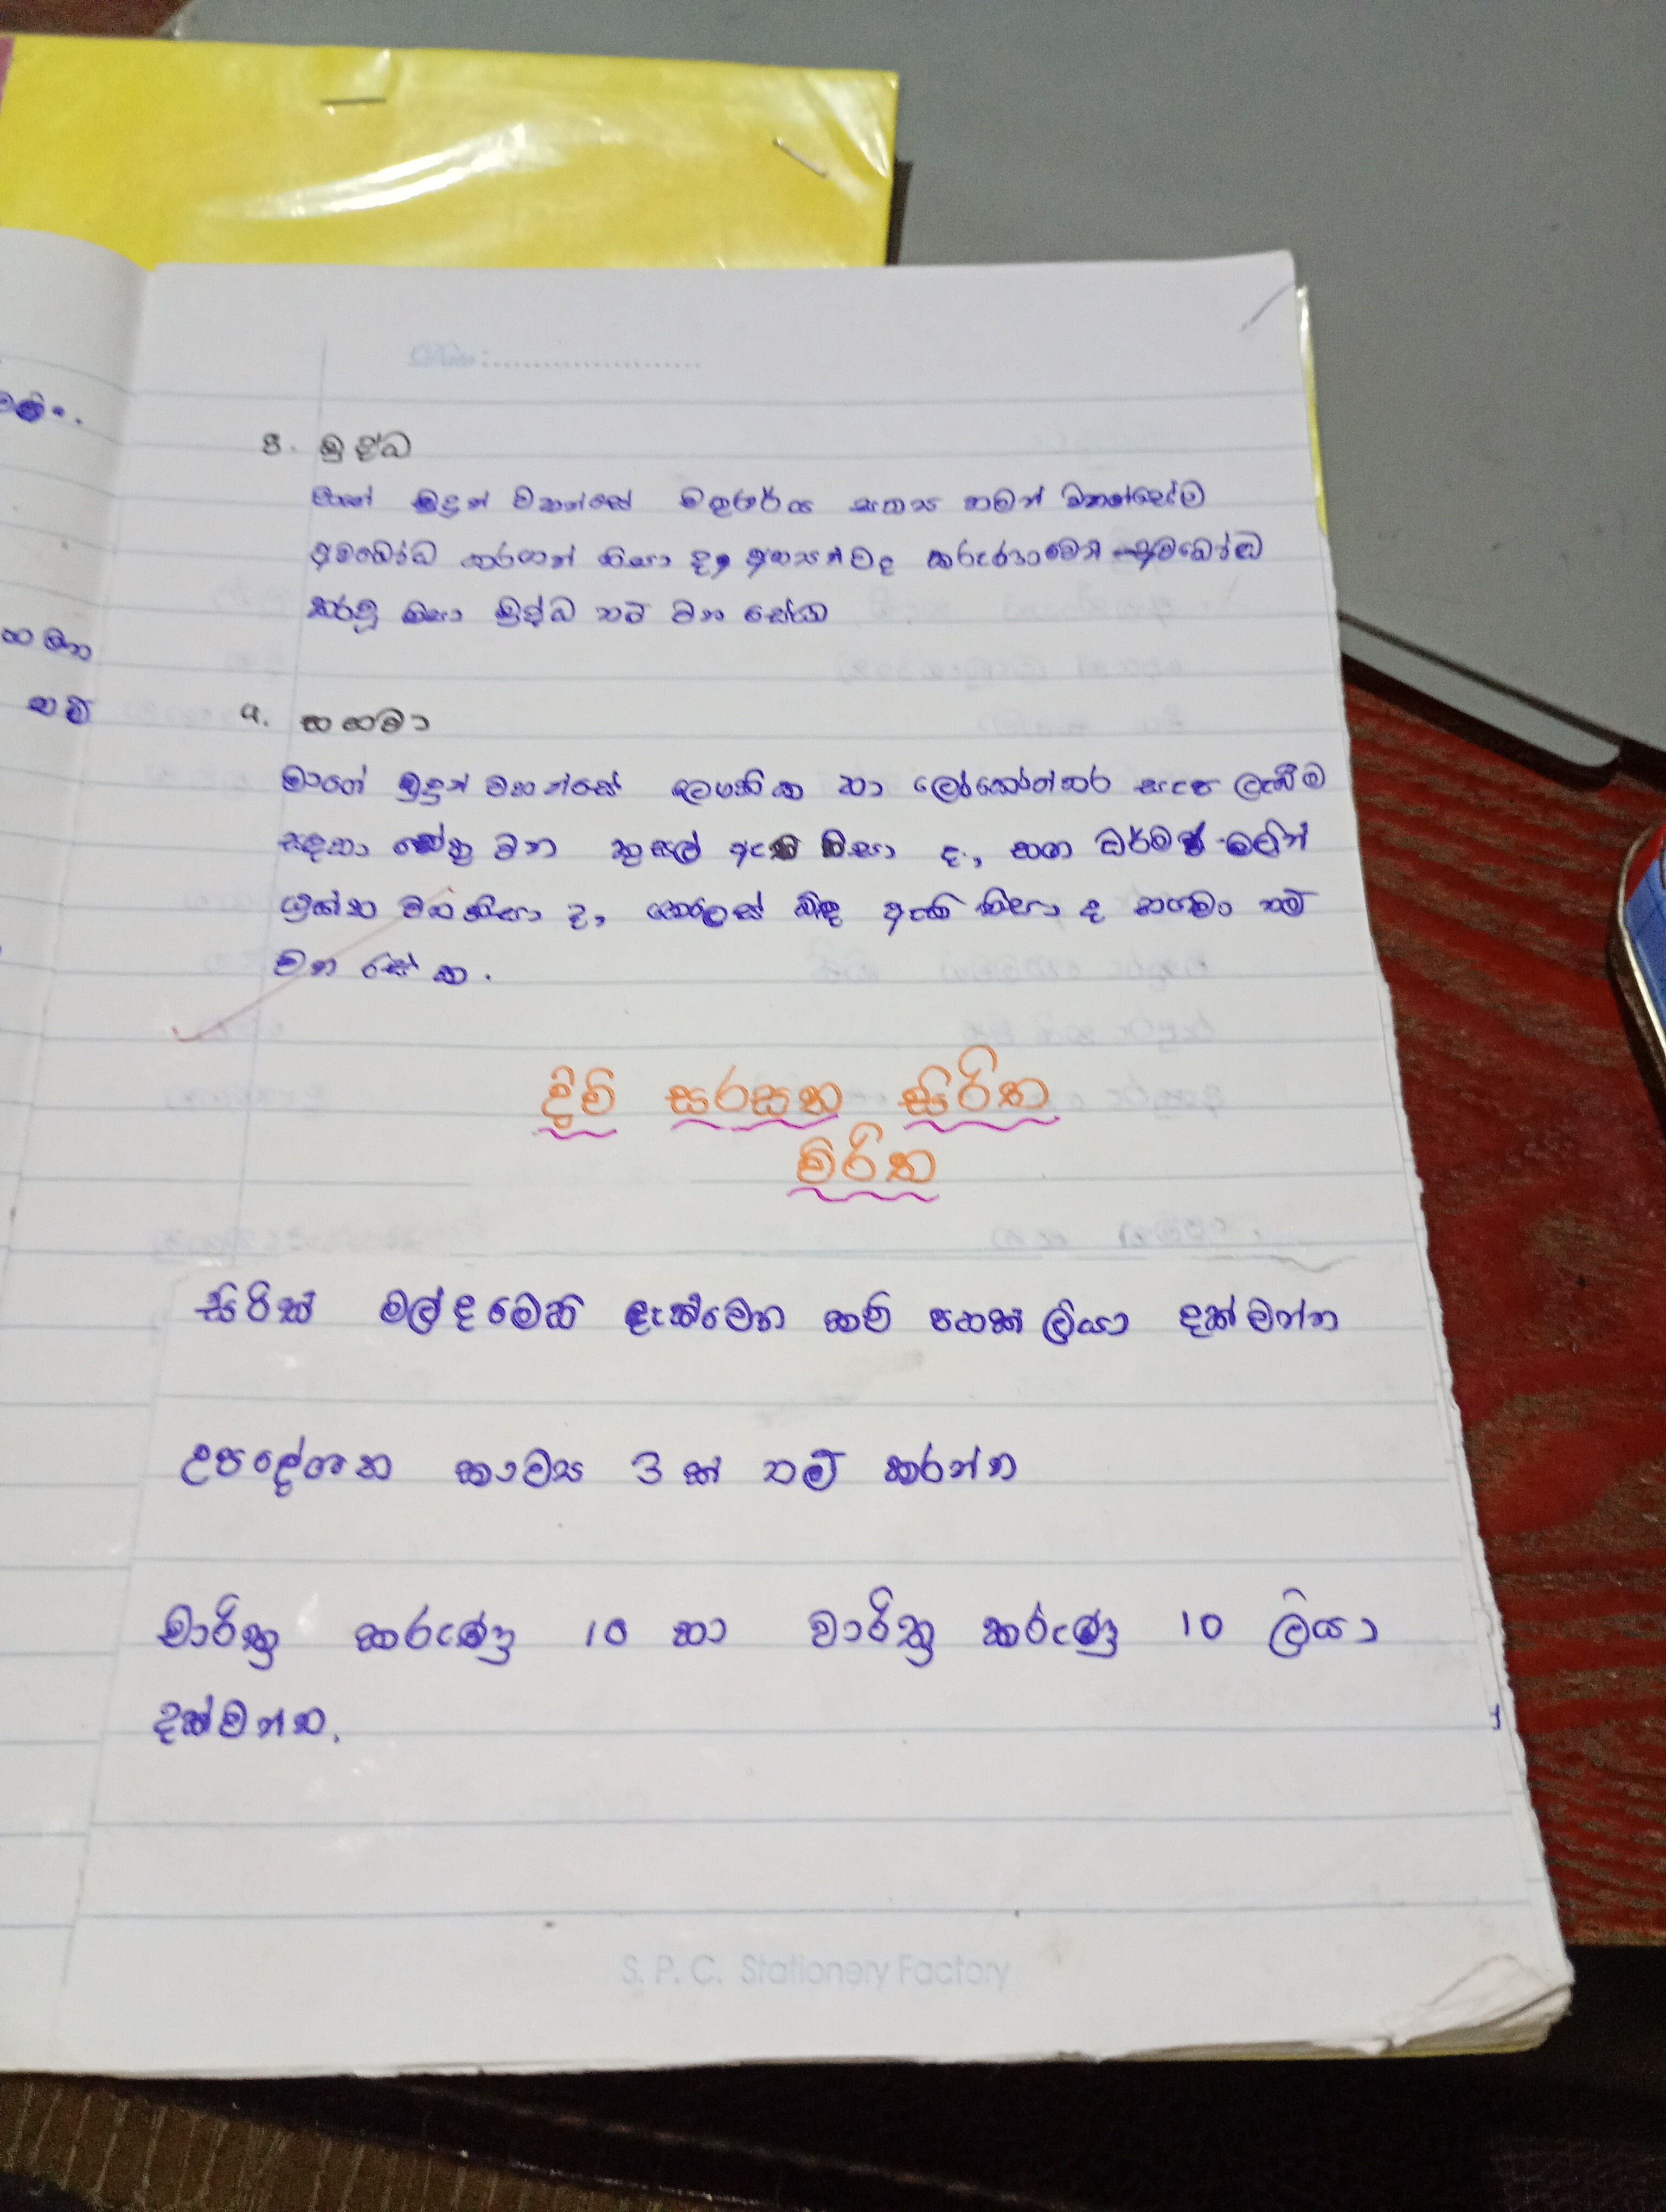 8. බුද්ධ
මාගේ බුදුන් වහන්සේ චතුරාර්ය සත්‍යය තමන් වහන්සේ
අවබෝධ කරගත් නිසා ද, අන්‍යන්ටද කරුණාවෙන් අවබෝධ
කරවූ නිසා බුද්ධ නම් වන සේක
9. භගවා
මාගේ බුදුන් වහන්සේ ලෞකික හා ලෝකෝත්තර සැප ලැබීම
සඳහා හේතු වන කුසල් ඇති නිසා ද, භග ධර්ම වලින්
යුක්ත වන නිසා ද, කෙලෙස් බිඳ ඇති නිසා ද භගවා නම්
වන සේක.
දිවි සරසන සිරිත
විරිත
සිරිත් මල්දමෙහි දැක්වෙන කවි පහක් ලියා දක්වන්න
උපදේශන කාව්‍ය 3ක් නම් කරන්න
චාරිත්‍ර කරුණු 10 හා වාරිත්‍ර කරුණු 10 ලියා
දක්වන්න.
S. P. C. Stationery Factory